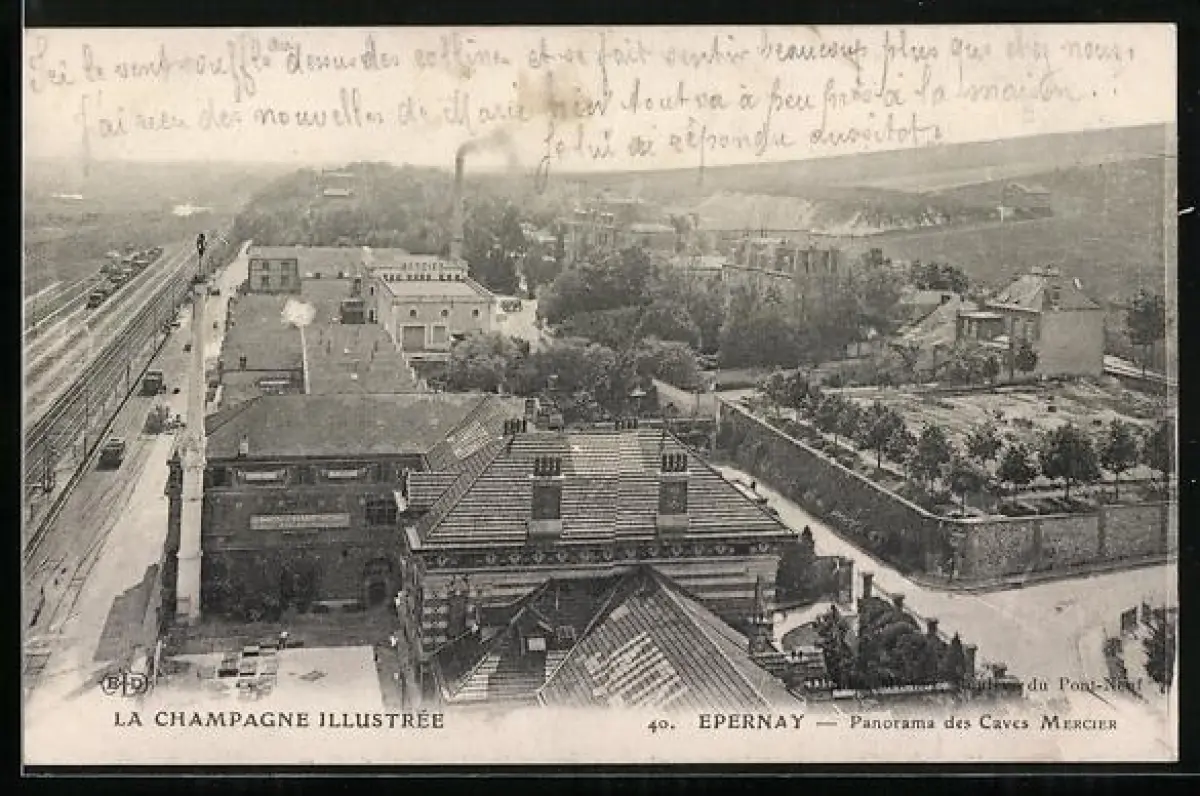 Ici le vent souffle au dessus des collines et se fait sentir beaucoup plus que chez nous.
J'ai reçu des nouvelles de Marie bien tout va à peu près à la maison..
Je lui ai répondu aussitot.
MERCIER
du Pont-Neuf
ELD
LA CHAMPAGNE ILLUSTRÉE
40. EPERNAY — Panorama des Caves MERCIER